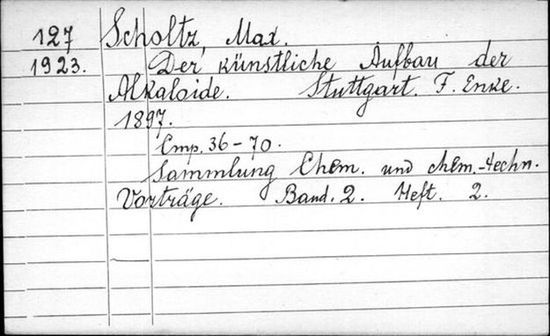 127 Scholtz, Max.
1923. Der künstliche Aufbau der
Alkaloide. Stuttgart. F. Enke.
1897.
Стр. 36-70.
Sammlung Chem. und chem.-techn.
Vorträge. Band. 2. Heft. 2.